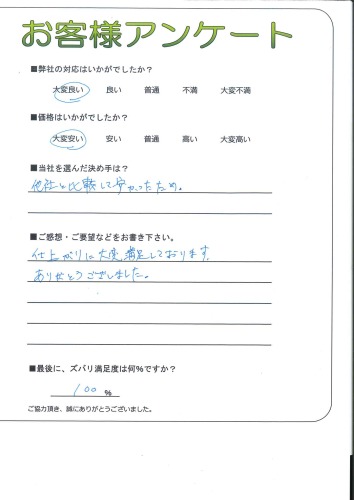 お客様アンケート
■弊社の対応はいかがでしたか？
大変良い 良い 普通 不満 大変不満
■価格はいかがでしたか？
大変安い 安い 普通 高い 大変高い
■当社を選んだ決め手は？
他社と比較して安かったため。
■ご感想・ご要望などをお書き下さい。
仕上がりに大変満足しております
ありがとうございました。
■最後に、ズバリ満足度は何%ですか？
100 %
ご協力頂き、誠にありがとうございました。